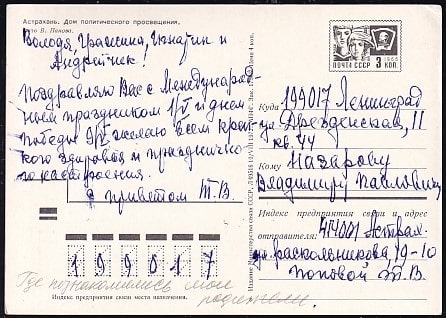 Астрахань. Дом политического просвещения.
Фото В. Панова.
Володя, Грашина, Игнатик и
Андрейчик!
Поздравляю Вас с Международ-
ным праздником 1/V и днем
победы 9/V желаю всем креп-
кого здоровья и праздничко
го настроения.
с приветом Т. В.
ПОЧТА СССР 3 КОП
1966
Куда 199017 Ленинград
ул Дрезденская, 11
кв. 44
Кому Назарову
Владимиру Павлович
Индекс предприятия связи и адрес
отправителя: 414001 Астрах.
ул. Раскольникова 19-10
Поповой Т. В.
199017
Индекс предприятия связи места назначения.
Где познакомились мои
родители.
Издание Министерства связи СССР.